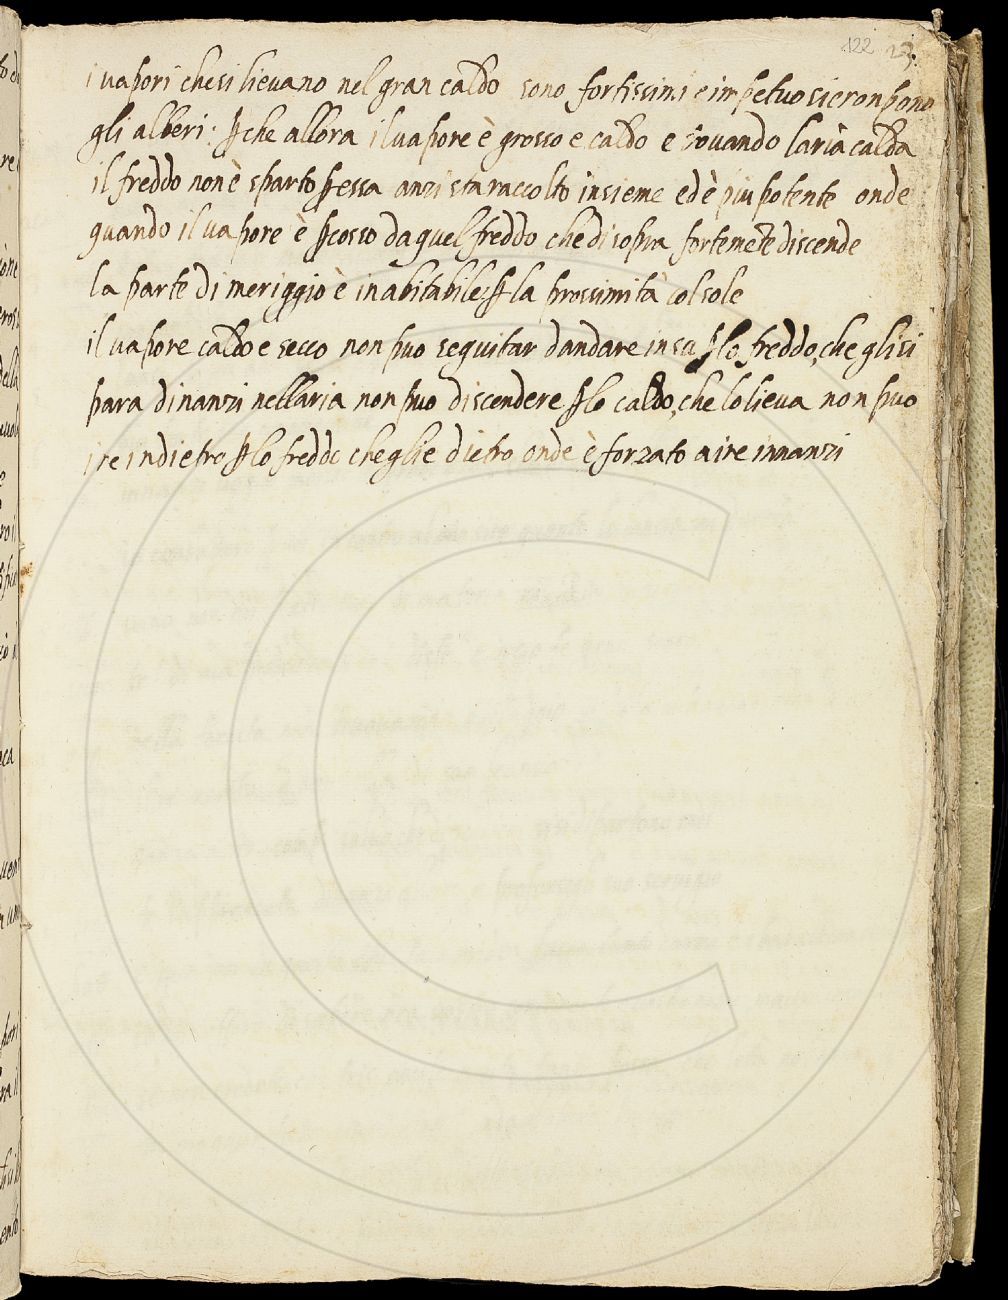 122 23.
i vapori che si lievano nel gran caldo sono fortissimi e impetuosi e ronpono
gli alberi: ꝑche allora il vapore è grosso e caldo e trovando laria calda
il freddo non è sparto ꝑessa anzi sta raccolto insieme ed è piu potente onde
quando il vapore è ꝑcosso da quel freddo che di sopra fortemẽte discende
la parte di meriggio è inabitabile ꝑla prossimità col sole
il vapore caldo e secco non puo seguitar dandare in su ꝑlo freddo, che gli si
para dinanzi nellaria non puo discendere ꝑlo caldo, che lo lieva non puo
ire indietro ꝑlo freddo che glie dietro onde è forzato a ire innanzi